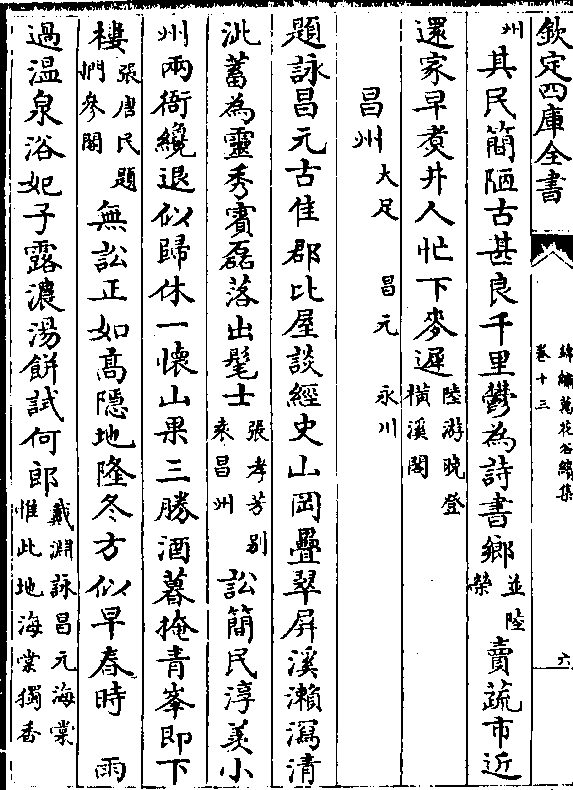 欽定四庫全書
錦繡萬花谷續集
卷十三
六
州
其民簡陋古甚良千里鬱為詩書鄉
並陸
榮
賣蔬市近
還家早煑井人忙下麥遲
陸游晚登
橫溪閣
昌州
大足 昌元 永川
題詠昌元古佳郡比屋談經史山岡疊翠屏溪瀨瀉清
泚蓄為靈秀賓磊落出髦士
張孝芳别
袁昌州
訟簡民淳羙小
州兩衙纔退似歸休一懷山果三勝酒暮掩青峯即下
樓
張唐民題
捫參閣
無訟正如髙隱地隆冬方似早春時
雨
過温泉浴妃子露濃湯餅試何郎
戴淵詠昌元海棠
惟此地海棠獨香